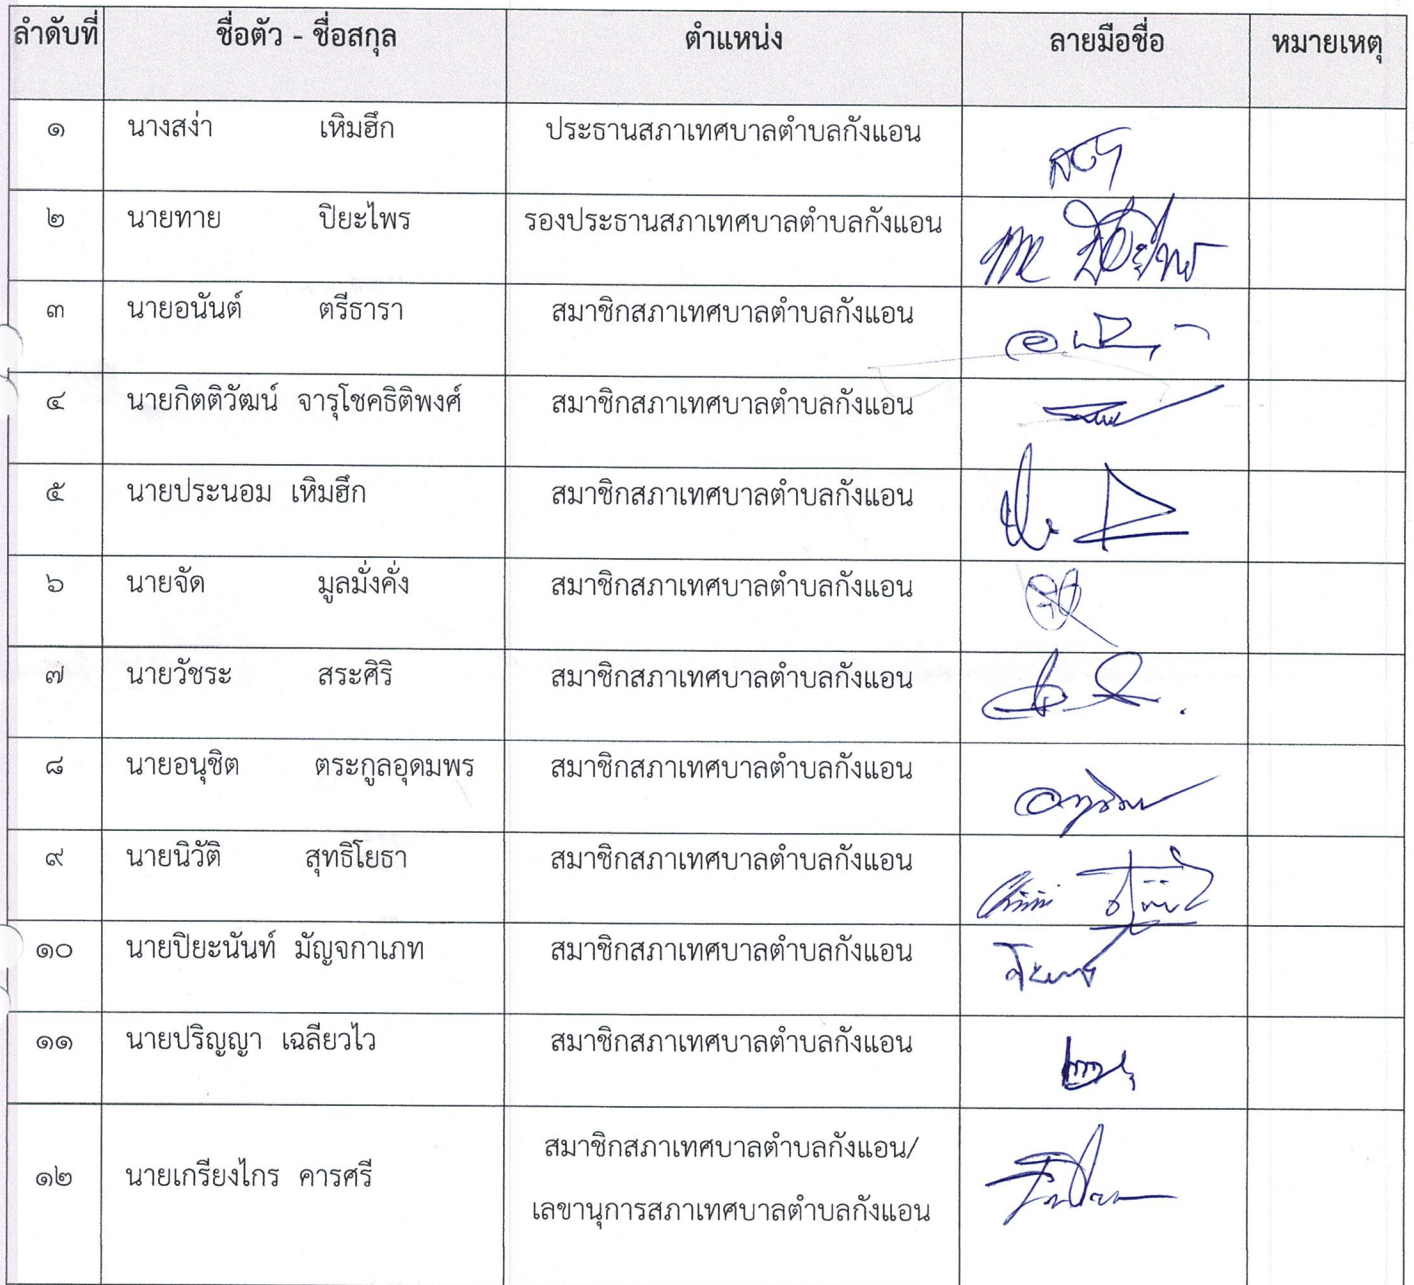 ลำดับที่ ชื่อตัว - ชื่อสกุล ตำแหน่ง ลายมือชื่อ หมายเหตุ
๑ นางสง่า เหิมฮึก ประธานสภาเทศบาลตำบลกังแอน
๒ นายทาย ปิยะไพร รองประธานสภาเทศบาลตำบลกังแอน
๓ นายอนันต์ ตรีธารา สมาชิกสภาเทศบาลตำบลกังแอน
๔ นายกิตติวัฒน์ จารุโชคธิติพงศ์ สมาชิกสภาเทศบาลตำบลกังแอน
๕ นายประนอม เหิมฮึก สมาชิกสภาเทศบาลตำบลกังแอน
๖ นายจัด มูลมั่งคั่ง สมาชิกสภาเทศบาลตำบลกังแอน
๗ นายวัชระ สระศิริ สมาชิกสภาเทศบาลตำบลกังแอน
๘ นายอนุชิต ตระกูลอุดมพร สมาชิกสภาเทศบาลตำบลกังแอน
๙ นายนิวัติ สุทธิโยธา สมาชิกสภาเทศบาลตำบลกังแอน
๑๐ นายปิยะนันท์ มัญจกาเภท สมาชิกสภาเทศบาลตำบลกังแอน
๑๑ นายปริญญา เฉลียวไว สมาชิกสภาเทศบาลตำบลกังแอน
๑๒ นายเกรียงไกร คารศรี สมาชิกสภาเทศบาลตำบลกังแอน/
เลขานุการสภาเทศบาลตำบลกังแอน